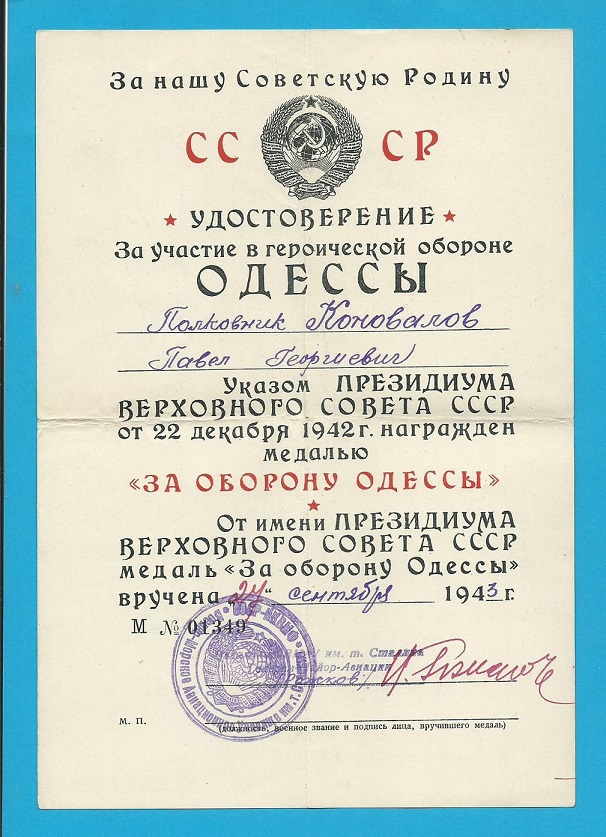 За нашу Советскую Родину
СС СР
УДОСТОВЕРЕНИЕ
За участие в героической обороне
ОДЕССЫ
Полковник Коновалов
Павел Георгиевич
Указом ПРЕЗИДИУМА
ВЕРХОВНОГО СОВЕТА СССР
от 22 декабря 1942 г. награжден
медалью
«ЗА ОБОРОНУ ОДЕССЫ»
От имени ПРЕЗИДИУМА
ВЕРХОВНОГО СОВЕТА СССР
медаль «За оборону Одессы»
вручена „27" сентября 1943 г.
М № 01349
им. т. Сталина
йор-Авиации
М. П.
(должность, военное звание и подпись лица, вручившего медаль)